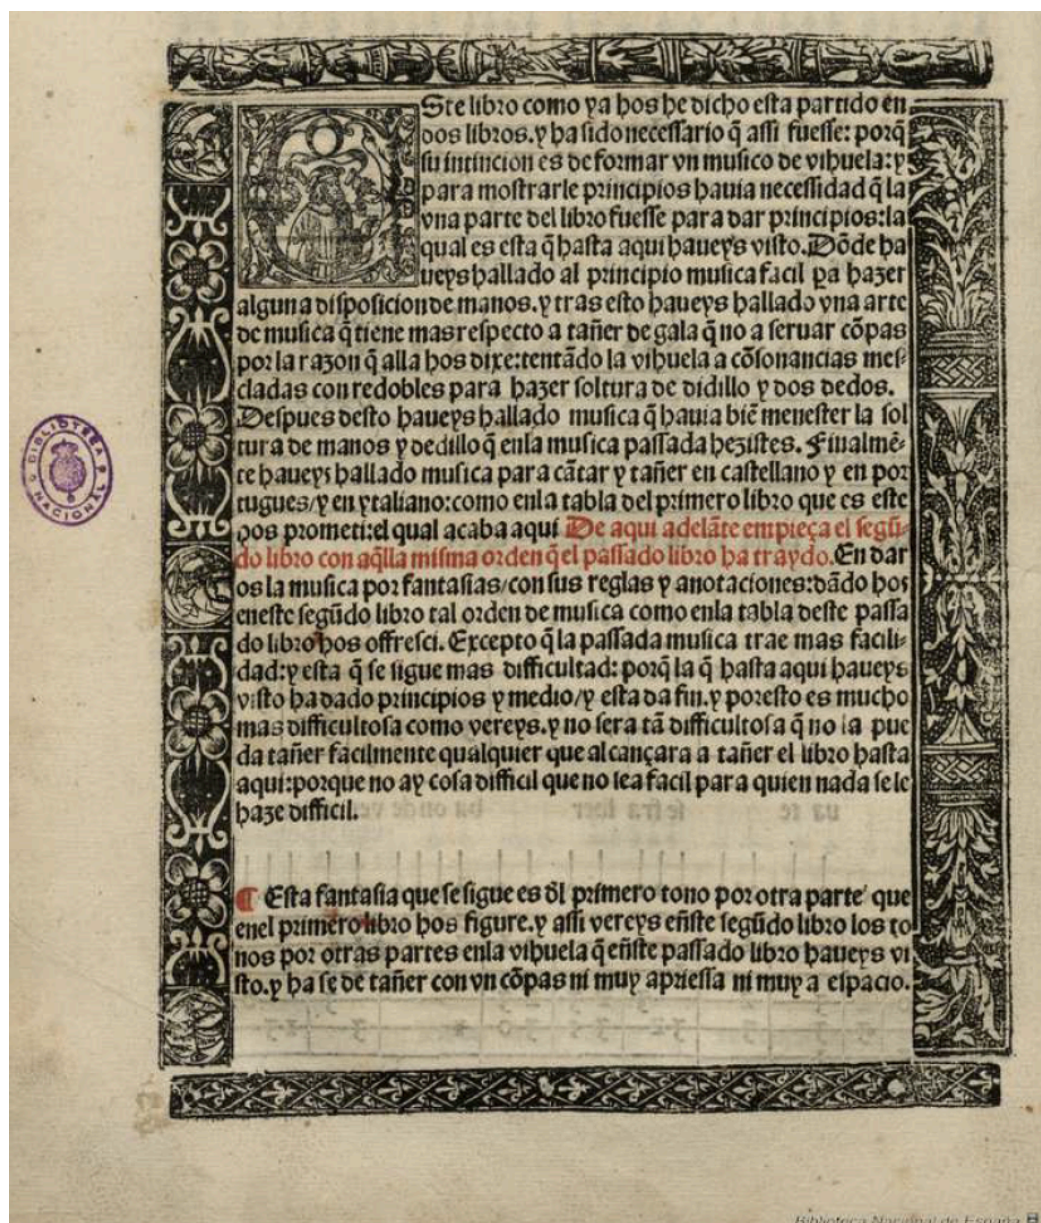 Este libro como ya hos he dicho esta partido en
dos libros. y ha sido necessario q̃ assi fuesse: porq̃
su intincion es de formar vn musico de vihuela: y
para mostrarle principios hauia necessidad q̃ la
vna parte del libro fuesse para dar principios: la
qual es esta q̃ hasta aqui haueys visto. Dõde ha
ueys hallado al principio musica facil ꝑa hazer
alguna disposicion de manos. y tras esto haueys hallado vna arte
de musica q̃ tiene mas respecto a tañer de gala q̃ no a seruar cõpas
por la razon q̃ alla hos dixe: tentãdo la vihuela a cõsonancias mes-
cladas con redobles para hazer soltura de didillo y dos dedos.
Despues desto haueys hallado musica q̃ hauia biẽ menester la sol
tura de manos y dedillo q̃ enla musica passada hezistes. Finalmẽ-
te haueys hallado musica para cãtar y tañer en castellano y en por
tugues/ y en ytaliano: como enla tabla del primero libro que es este
hos prometi: el qual acaba aqui De aqui adelãte empieça el segũ-
do libro con aq̃lla misma orden q̃ el passado libro ha traydo. En dar
os la musica por fantasias/ con sus reglas y anotaciones: dãdo hos
eneste segũdo libro tal orden de musica como enla tabla deste passa
do libro hos offresci. Excepto q̃ la passada musica trae mas facili-
dad: y esta q̃ se sigue mas difficultad: porq̃ la q̃ hasta aqui haueys
visto ha dado principios y medio/ y esta da fin. y poresto es mucho
mas difficultosa como vereys. y no sera tã difficultosa q̃ no la pue
da tañer facilmente qualquier que alcançara a tañer el libro hasta
aqui: porque no ay cosa difficil que no sea facil para quien nada se le
haze difficil.
¶ Esta fantasia que se sigue es dl̃ primero tono por otra parte que
enel primero libro hos figure. y assi vereys eñste segũdo libro los to
nos por otras partes enla vihuela q̃ eñste passado libro haueys vi
sto. y ha se de tañer con vn cõpas ni muy apriessa ni muy a espacio.
BIBLIOTECA NACIONAL
Biblioteca Nacional de España